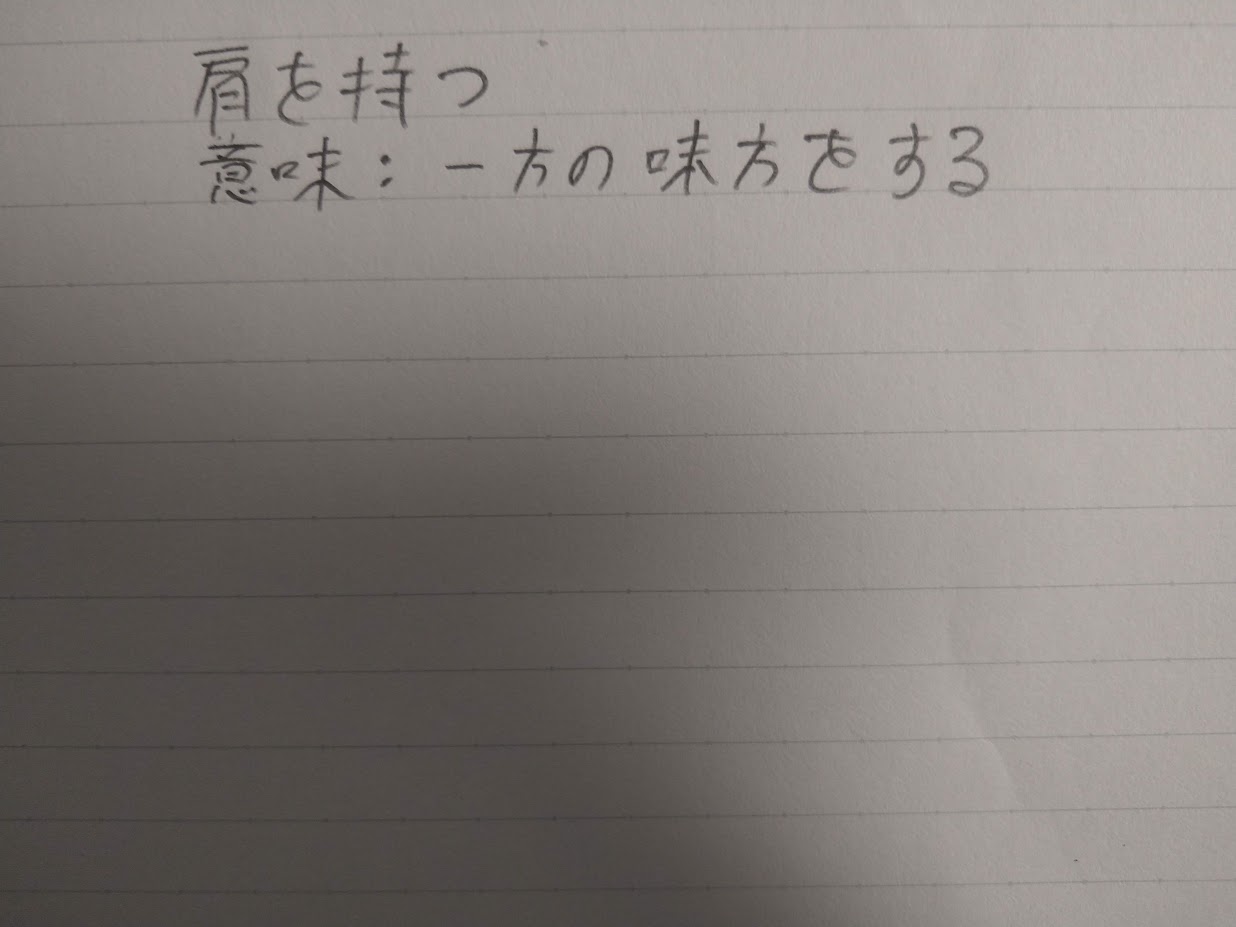 肩を持つ
意味：一方の味方をする